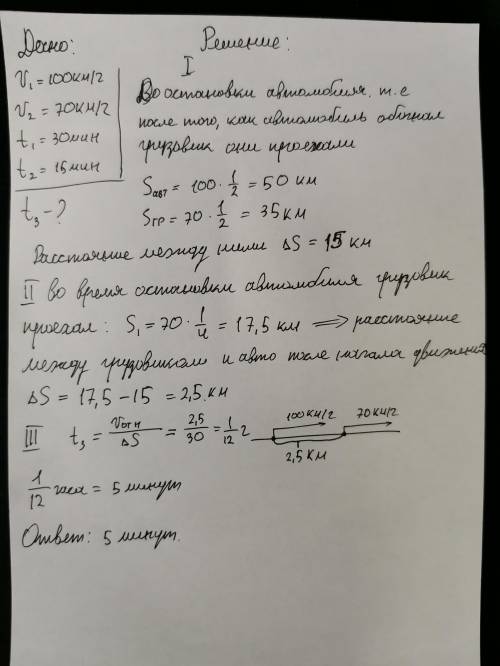 Дано:
Решение:
V₁ = 100км/г
V₂ = 70км/г
t₁ = 30мин
t₂ = 15мин
t₃ - ?
I
До остановки автомобиля. т.е
после того, как автомобиль обогнал
грузовик они проехали
Sавт = 100 · 1/2 = 50 км
Sгр = 70 · 1/2 = 35 км
Расстояние между ними ΔS = 15 км
II во время остановки автомобиля грузовик
проехал: S₁ = 70 · 1/4 = 17,5 км ⟹ расстояние
между грузовиком и авто после начала движения
ΔS = 17,5 - 15 = 2,5 км
III t₃ = Vотн/ΔS = 2,5/30 = 1/12 г
100км/г 70км/г
2,5 км
1/12 часа = 5 минут
Ответ: 5 минут.